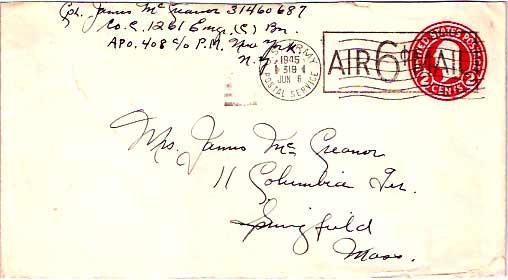 Cpl. James McGreanor 31460687
Co. C. 1261 Engr. (C) Bn.
APO. 408 c/o P.M. New York
N.Y.
U.S. ARMY
1945
319
JUN 6
POSTAL SERVICE
AIR 6¢ MAIL
UNITED STATES POSTAGE
2 CENTS 2
Mrs. James McGreanor
11 Columbia Ter.
Springfield
Mass.